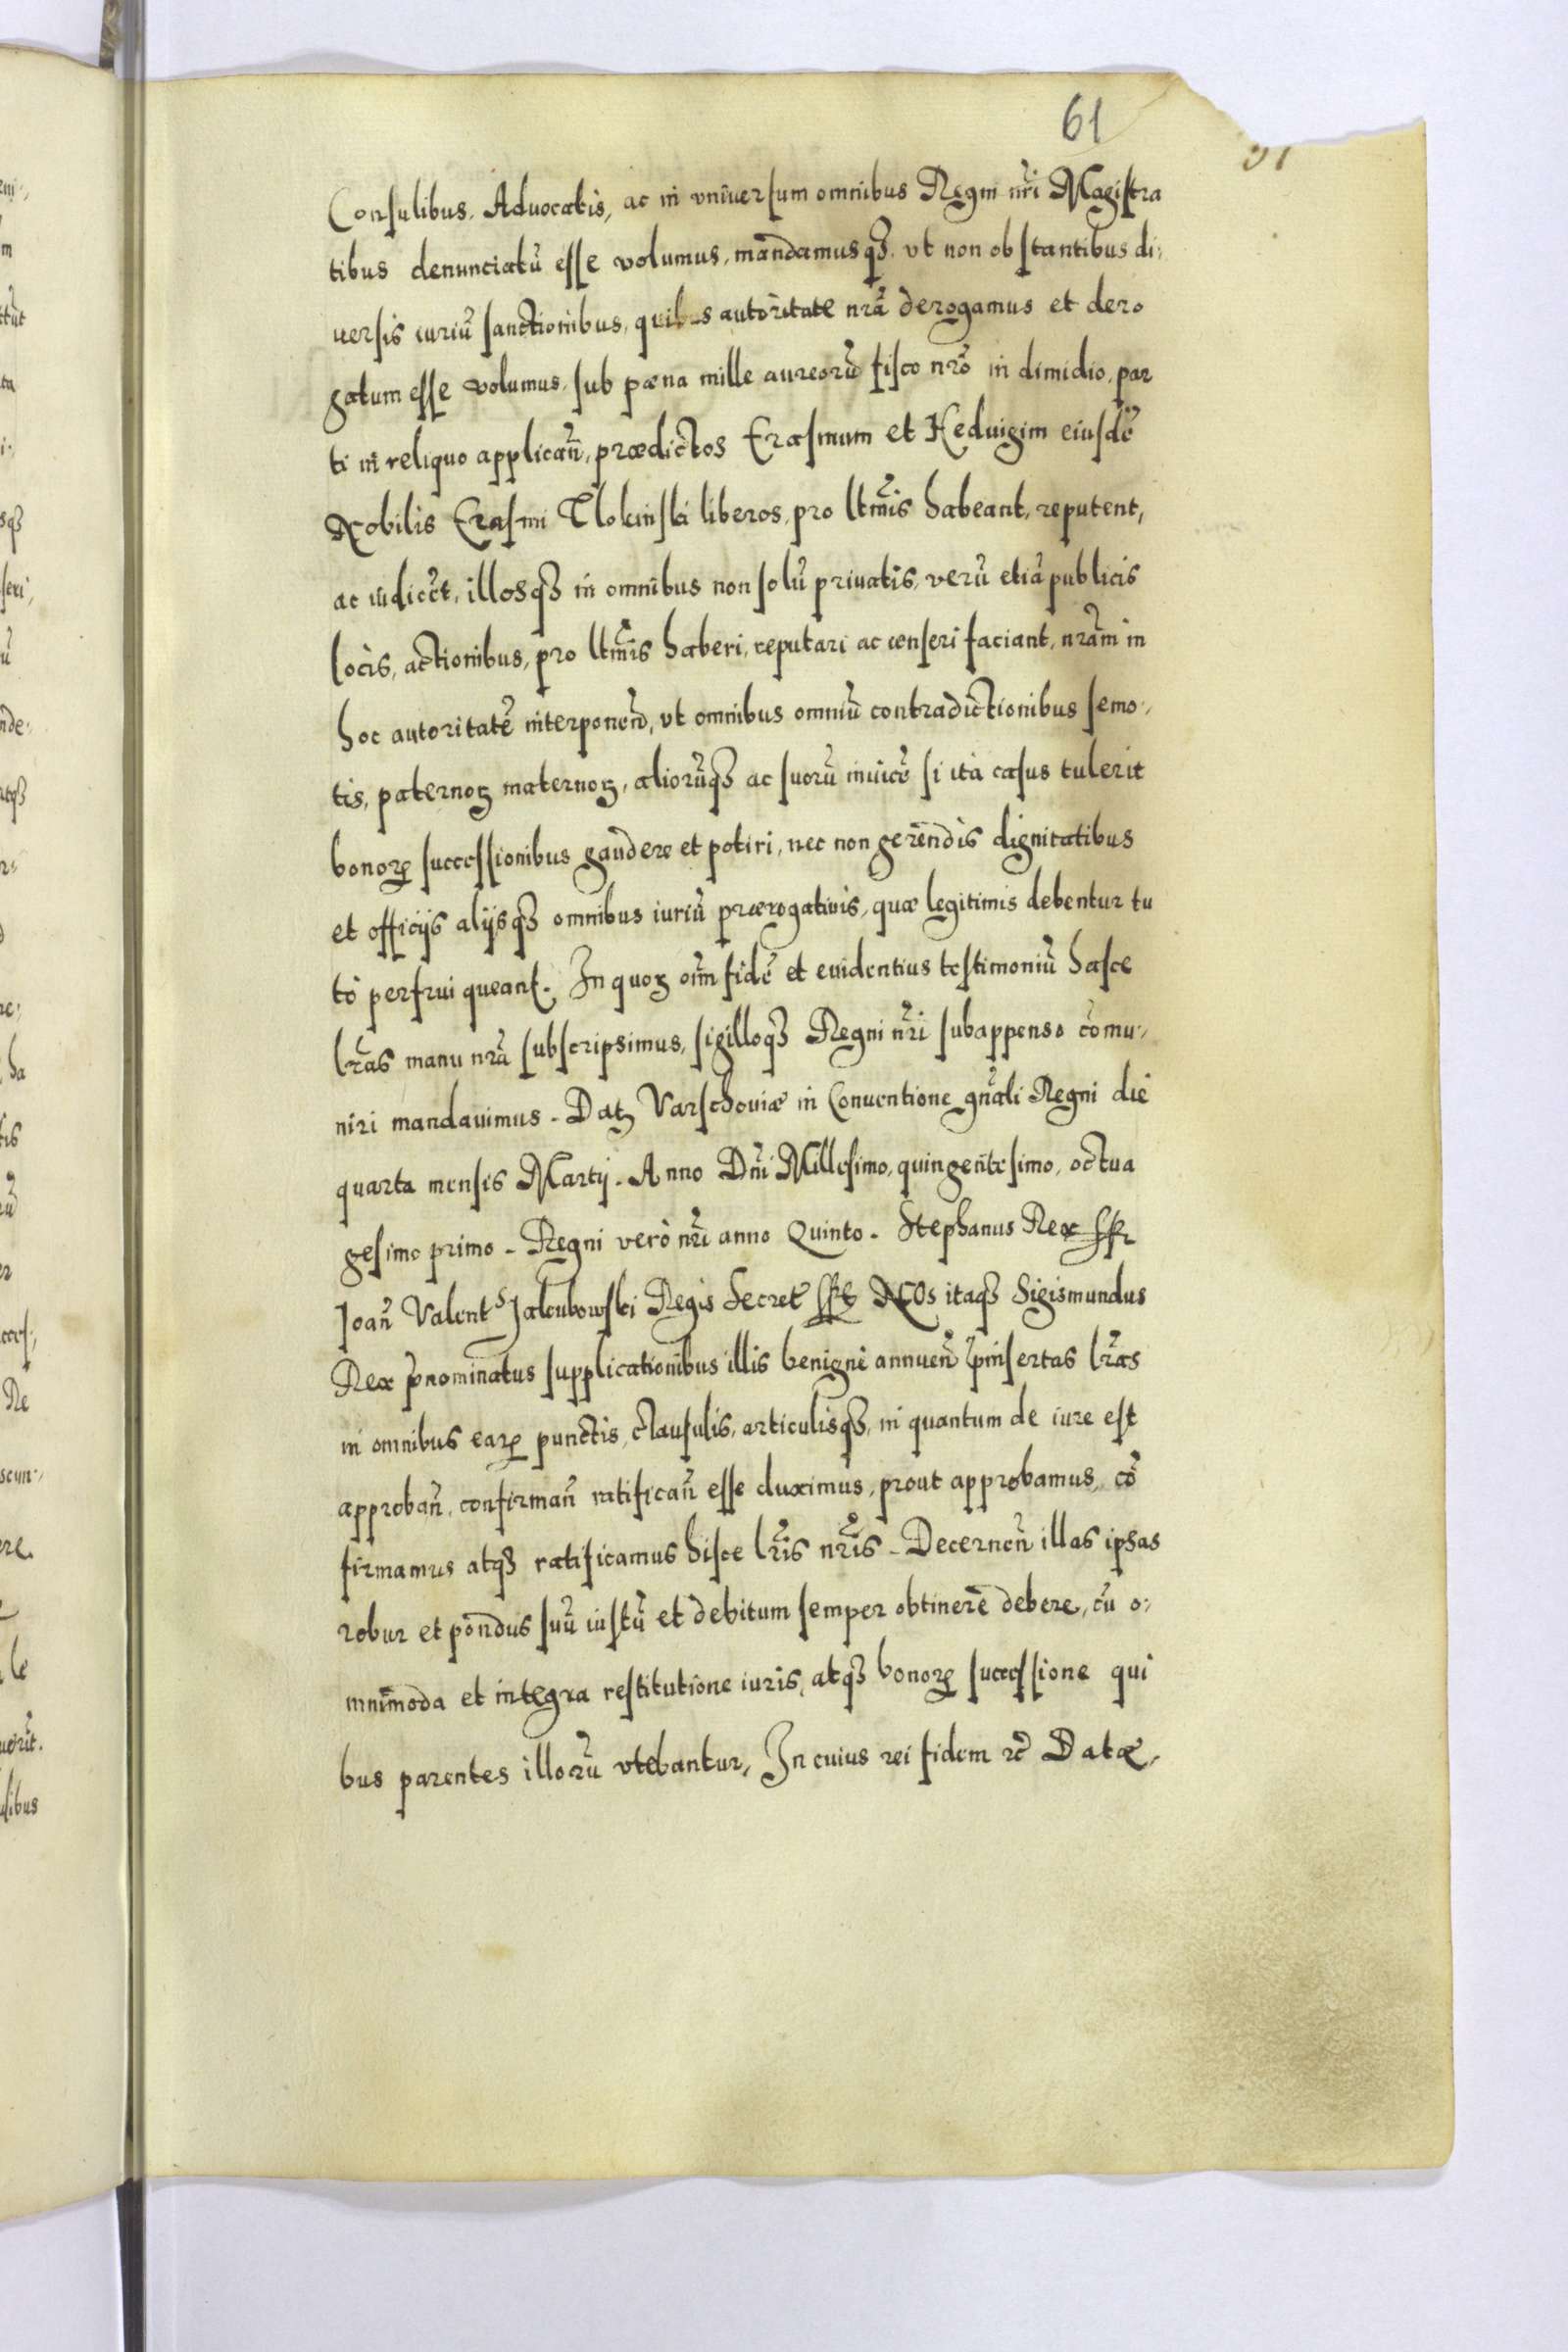 61
Consulibus, Advocatis, ac in vniuersum omnibus Regni nr̃i Magistra
tibus denunciatũ esse volumus, mandamusqꝫ, vt non obstantibus di:
uersis iuriũ sanctionibus, quibus autoritate nrã derogamus et dero
gatum esse volumus, sub pæna mille aureorũ fisco nrõ in dimidio, par
ti in reliquo applicañ, prædictos Erasmum et Heduigim eiusdẽ
Nobilis Erasmi Tlokinski liberos, pro ltmĩs habeant, reputent,
ac iudicẽt, illosqꝫ in omnibus non solũ priuatis, verũ etiã publicis
locis, actionibus, pro ltmĩs haberi, reputari ac censeri faciant, nrãm in
hoc autoritatẽ interponeñ, vt omnibus omniũ contradictionibus semo:
tis, paternoꝝ maternoꝝ, aliorũqꝫ ac suorũ inuicẽ si ita casus tulerit
bonoꝝ successionibus gaudere et potiri, nec non gerendis dignitatibus
et officijs alijsqꝫ omnibus iuriũ prærogatiuis, quæ legitimis debentur tu
tò perfrui queant. In quoꝝ om̃ fidẽ et euidentius testimoniũ hasce
lrãs manu nrã subscripsimus, sigilloqꝫ Regni nr̃i subappenso cõmu:
niri mandauimus. Datꝫ Varschouiæ in Conuentione gnãli Regni die
quarta mensis Martij. Anno Dnĩ Millesimo, quingentesimo, octua
gesimo primo. Regni verò nr̃i anno Quinto. Stephanus Rex ssr̃
Joañ Valent Jakubowski Regis Secret ssr̃ NOs itaqꝫ Sigismundus
Rex p̃nominatus supplicationibus illis benignè annueñ p̃insertas lrãs
in omnibus earꝝ punctis, clausulis, articulisqꝫ, in quantum de iure est
approbañ, confirmañ ratificañ esse duximus, prout approbamus, cõ
firmamus atqꝫ ratificamus hisce lrĩs nrĩs. Decerneñ illas ipsas
robur et pondus suũ iustũ et debitum semper obtinere debere, cũ o:
mnimoda et integra restitutione iuris, atqꝫ bonoꝝ successione qui
bus parentes illorũ vtebantur, In cuius rei fidem rc̃ Datæ.